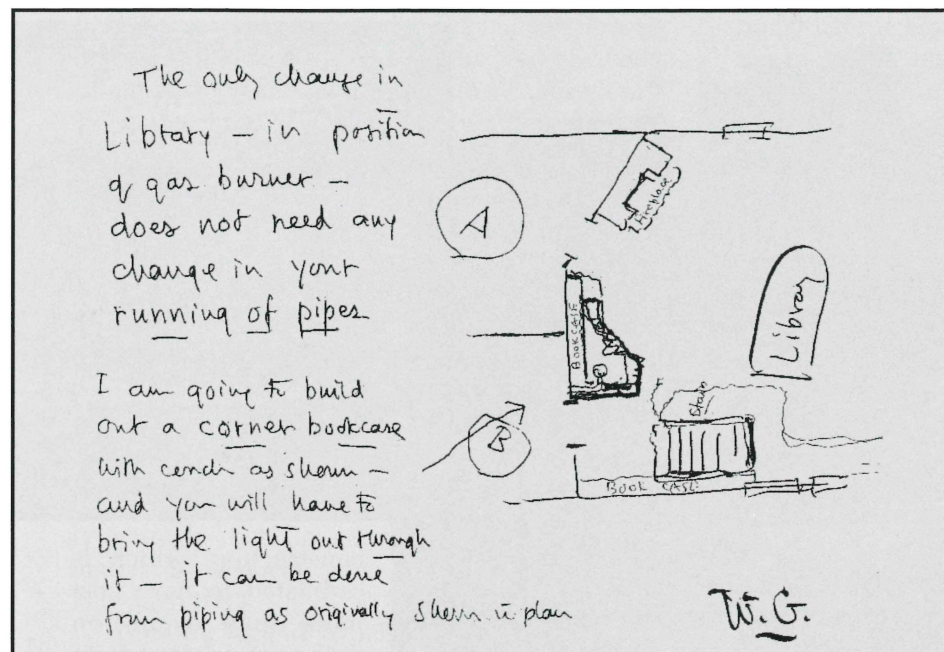 The only change in
Library — in position
of gas burner —
does not need any
change in your
running of pipes
I am going to build
out a corner bookcase
with conch as shewn —
and you will have to
bring the light out through
it — it can be done
from piping as originally shewn in plan
A
Fireplace
BOOKCASE
Library
Stairs
B
BOOK CASE
W.G.